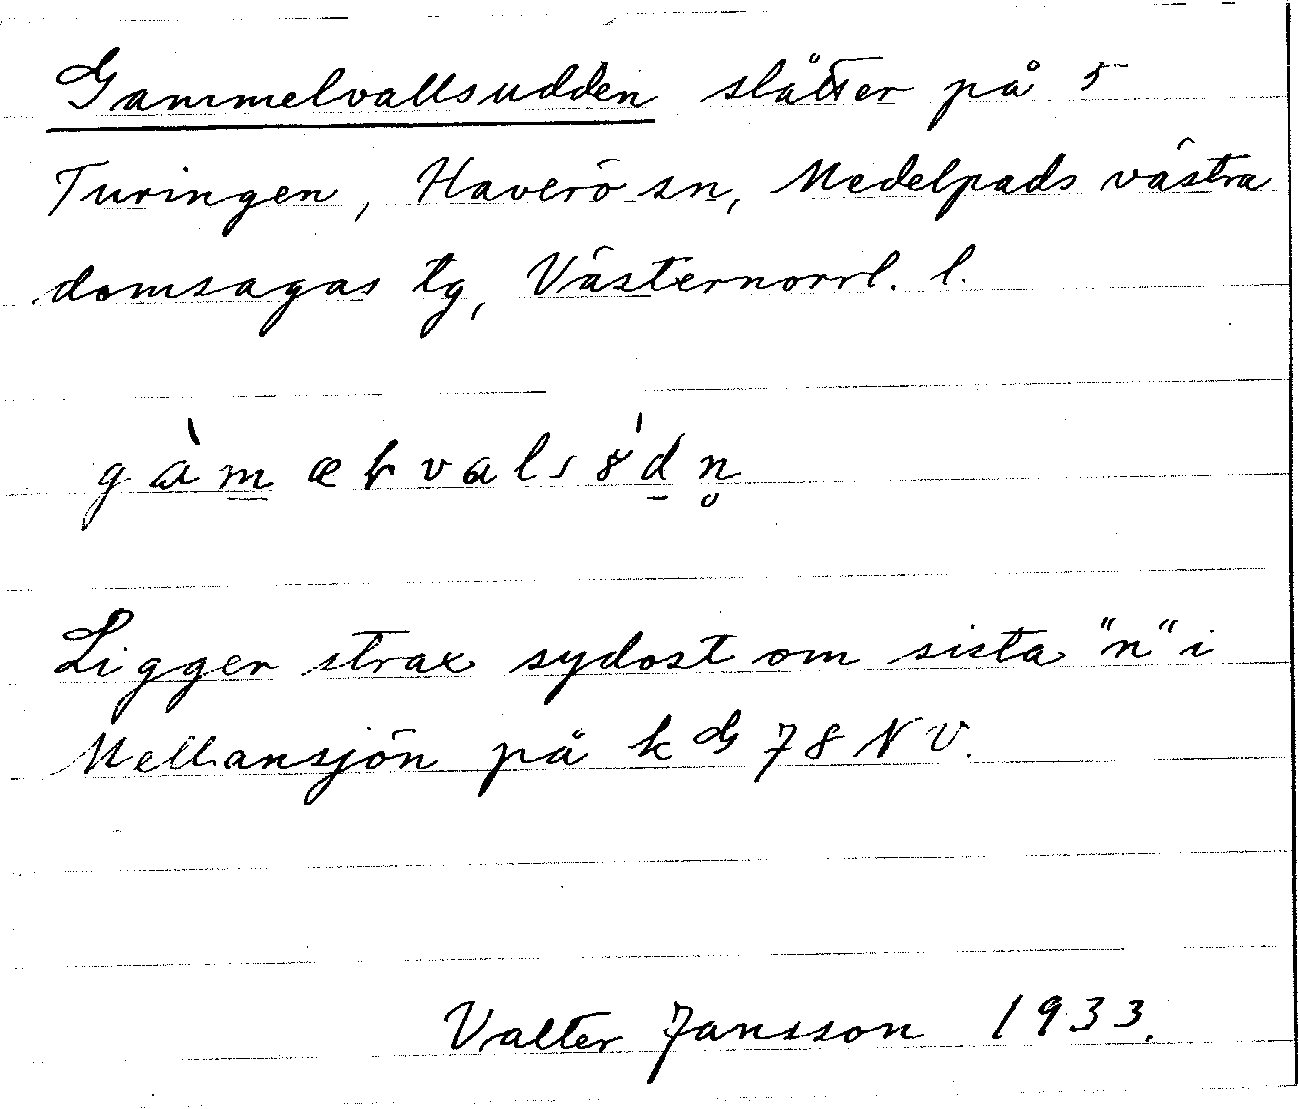 Gammelvallsudden slåtter på 5
Turingen, Haverö sn, Medelpads västra
domsagas tg, Västernorrl. l.
gàmæłvals8́dn̥
Ligger strax sydost om sista "n" i
Mellansjön på k G 78 NV.
Valter Jansson 1933.